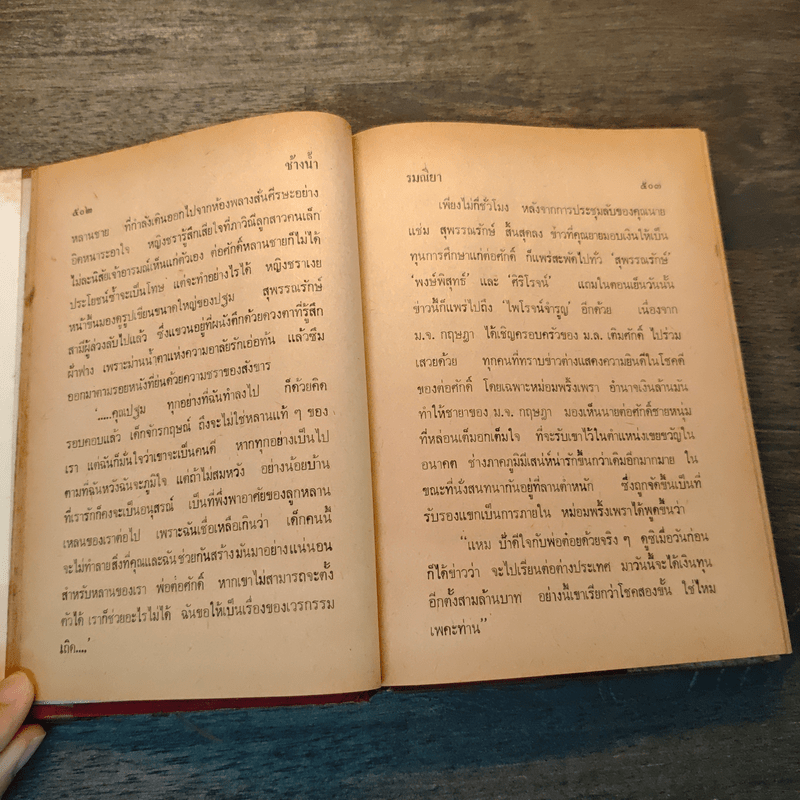 ๕๐๒
ช้างน้ำ
หลานชาย ที่กำลังเดินออกไปจากห้องพลางสั่นศีรษะอย่าง
อิดหนาระอาใจ หญิงชรารู้สึกเสียใจที่ภาวิณีลูกสาวคนเล็ก
ไม่ละนิสัยเจ้าอารมณ์เห็นแก่ตัวเอง ต่อศักดิ์หลานชายก็ไม่ได้
ประโยชน์ซ้ำจะเป็นโทษ แต่จะทำอย่างไรได้ หญิงชราเงย
หน้าขึ้นมองดูรูปเขียนขนาดใหญ่ของปฐม สุพรรณรักษ์
สามีผู้ล่วงลับไปแล้ว ซึ่งแขวนอยู่ที่ผนังตึกด้วยดวงตาที่รู้สึก
ฝ้าฟาง เพราะม่านน้ำตาแห่งความอาลัยรักเอ่อท้น แล้วซึม
ออกมาตามรอยหนังที่ย่นด้วยความชราของสังขาร
'.....คุณปฐม ทุกอย่างที่ฉันทำลงไป ก็ด้วยคิด
รอบคอบแล้ว เด็กจักรกฤษณ์ ถึงจะไม่ใช่หลานแท้ ๆ ของ
เรา แต่ฉันก็มั่นใจว่าเขาจะเป็นคนดี หากทุกอย่างเป็นไป
ตามที่ฉันหวังฉันจะภูมิใจ แต่ถ้าไม่สมหวัง อย่างน้อยบ้าน
ที่เรารักก็คงจะเป็นอนุสรณ์ เป็นที่พึ่งพาอาศัยของลูกหลาน
เหลนของเราต่อไป เพราะฉันเชื่อเหลือเกินว่า เด็กคนนี้
จะไม่ทำลายสิ่งที่คุณและฉันช่วยกันสร้างมันมาอย่างแน่นอน
สำหรับหลานของเรา พ่อต่อศักดิ์ หากเขาไม่สามารถจะตั้ง
ตัวได้ เราก็ช่วยอะไรไม่ได้ ฉันขอให้เป็นเรื่องของเวรกรรม
เถิด....'
รมณียา
๕๐๓
เพียงไม่กี่ชั่วโมง หลังจากการประชุมลับของคุณนาย
แช่ม สุพรรณรักษ์ สิ้นสุดลง ข่าวที่คุณยายมอบเงินให้เป็น
ทุนการศึกษาแก่ต่อศักดิ์ ก็แพร่สะพัดไปทั่ว 'สุพรรณรักษ์'
'พงษ์พิสุทธิ์' และ 'ศิริโรจน์' แถมในตอนเย็นวันนั้น
ข่าวนี้ก็แพร่ไปถึง 'ไพโรจน์จำรูญ' อีกด้วย เนื่องจาก
ม.จ. กฤษฎา ได้เชิญครอบครัวของ ม.ล. เติมศักดิ์ ไปร่วม
เสวยด้วย ทุกคนที่ทราบข่าวต่างแสดงความยินดีในโชคดี
ของต่อศักดิ์ โดยเฉพาะหม่อมพริ้งเพรา อำนาจเงินล้านมัน
ทำให้ชายาของ ม.จ. กฤษฎา มองเห็นนายต่อศักดิ์ชายหนุ่ม
ที่หล่อนเต็มอกเต็มใจ ที่จะรับเขาไว้ในตำแหน่งเขยขวัญใน
อนาคต ช่างภาคภูมิมีเสน่ห์น่ารักขึ้นกว่าเดิมอีกมากมาย ใน
ขณะที่นั่งสนทนากันอยู่ที่ลานตำหนัก ซึ่งถูกจัดขึ้นเป็นที่
รับรองแขกเป็นการภายใน หม่อมพริ้งเพราได้พูดขึ้นว่า
"แหม ป้าดีใจกับพ่อต๋อยด้วยจริง ๆ ดูซิเมื่อวันก่อน
ก็ได้ข่าวว่า จะไปเรียนต่อต่างประเทศ มาวันนี้จะได้เงินทุน
อีกตั้งสามล้านบาท อย่างนี้เขาเรียกว่าโชคสองชั้น ใช่ไหม
เพคะท่าน"